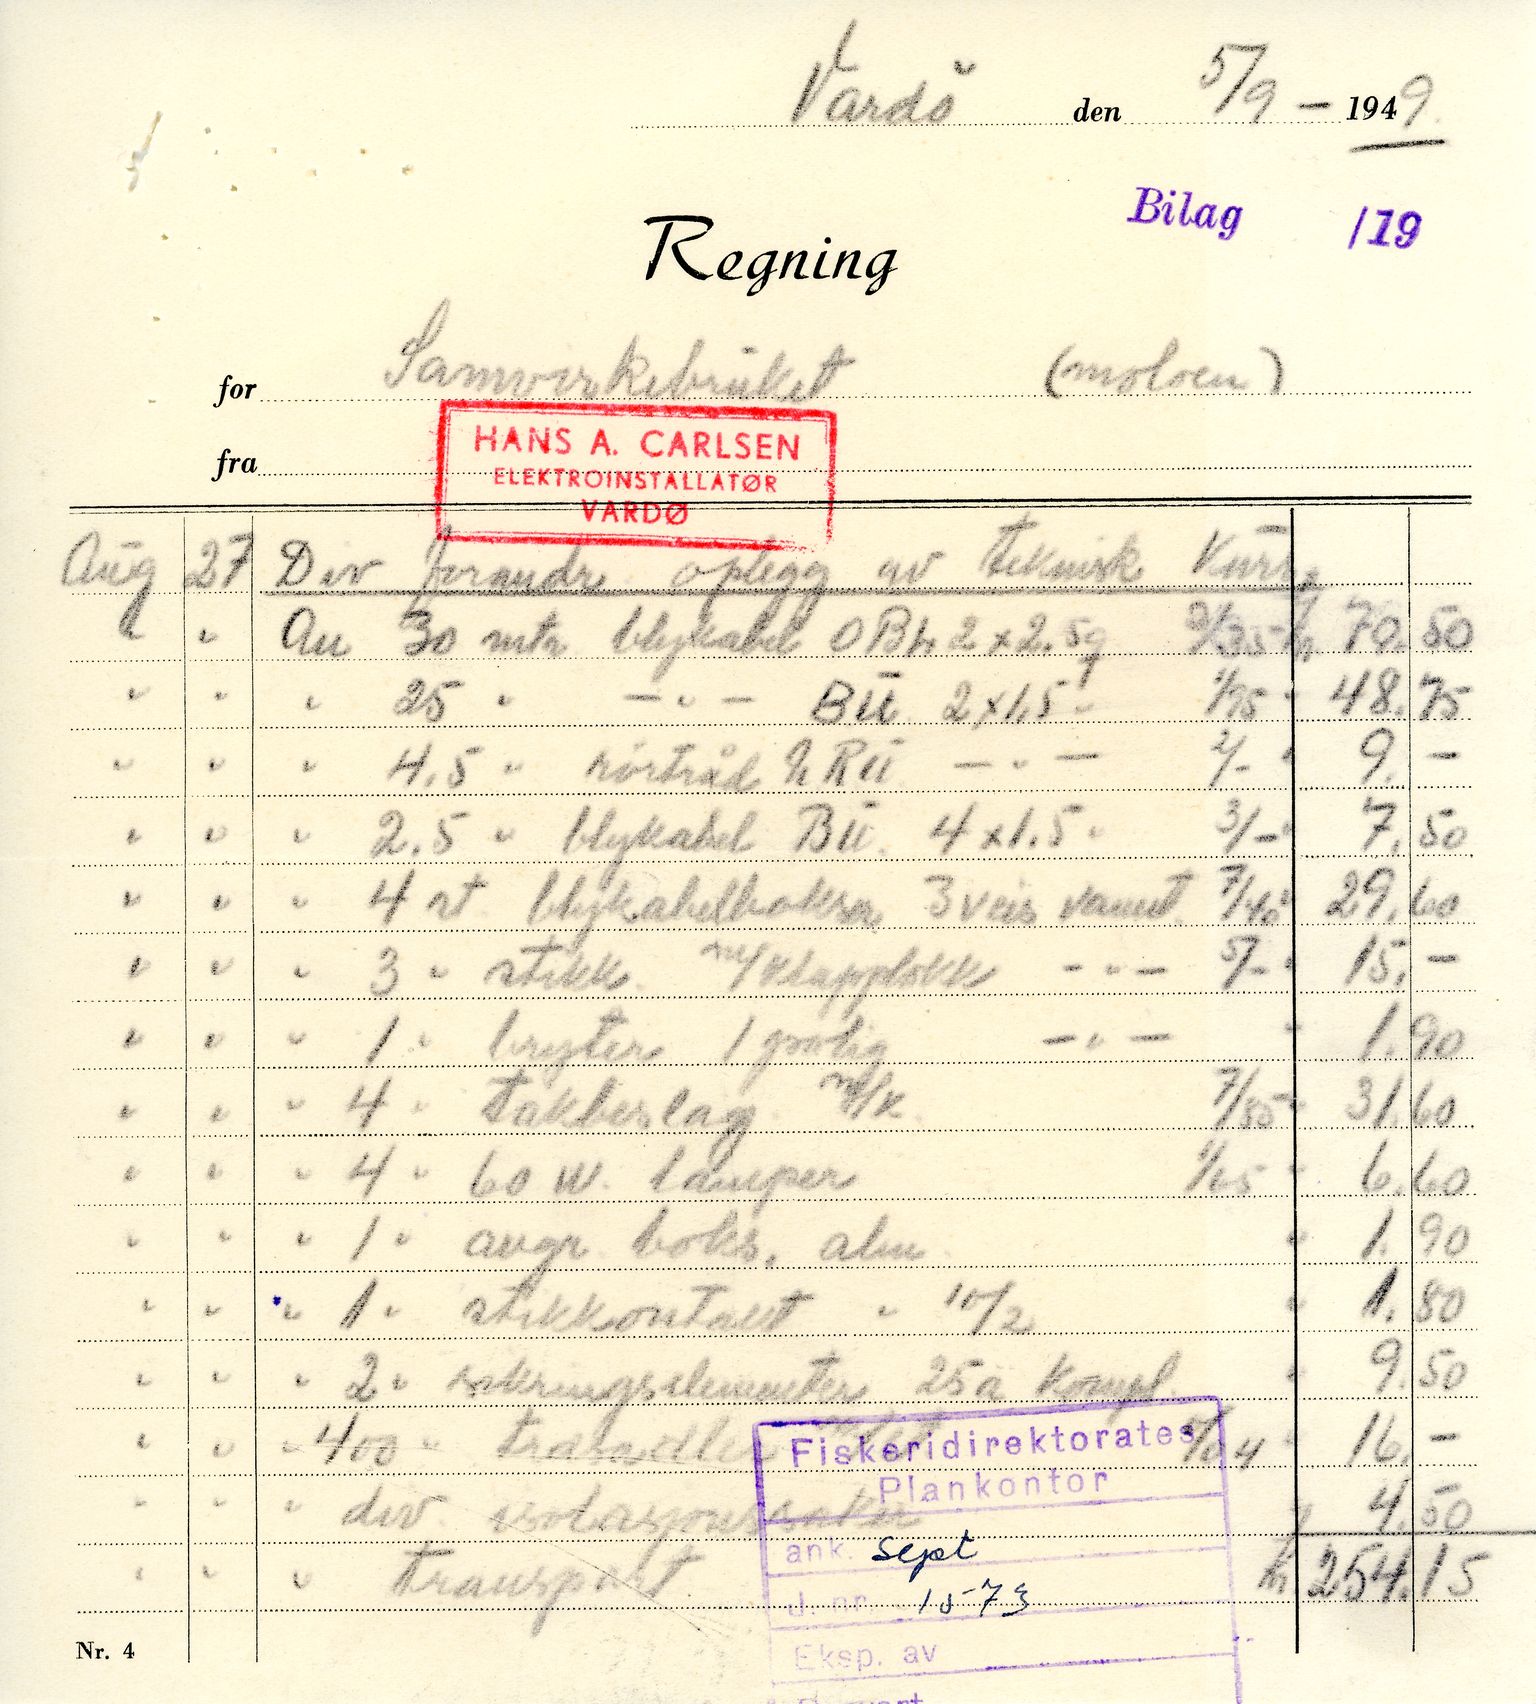 Vardö den 5/9 - 1949.
Bilag /19
Regning
for Samvirkebruket (moloen)
fra
HANS A. CARLSEN
ELEKTROINSTALLATØR
VARDØ
Aug 27 Div forandr. oplegg av teknisk Kurs,
" " An 30 mtr. blykabel 2 x 2.5q 2/35 kr 70.50
" " " 25 " - " - BU 2 x 1,5 " 1/95 " 48.75
" " " 4.5 " rörtråd RU - " - 2/- " 9. -
" " " 2.5 " blykabel BU. 4 x 1.5 " 3/- " 7.50
" " " 4 st. blykabelbokser 3 veis vannt. 7/40 " 29.60
" " " 3 " stikk. m/klapplokk - " - 5/- " 15. -
" " " 1 " bryter 1 polig - " - " 1.90
" " " 4 " takbeslag m/k. 7/85 " 31.60
" " " 4 " 60 W. lamper 1/65 " 6.60
" " " 1 " avgr. boks, alm. " 1.90
" " " 1 " stikkontakt " 10/2 " 1.80
" " " 2 " sikringselementer 25a Kompl. " 9.50
" " " 400 " " 16. -
" " " div. isolasjonssaker " 4.50
" " " Transport kr 254.15
Fiskeridirektorates
Plankontor
ank. Sept
J. nr. 1573
Eksp. av
Nr. 4